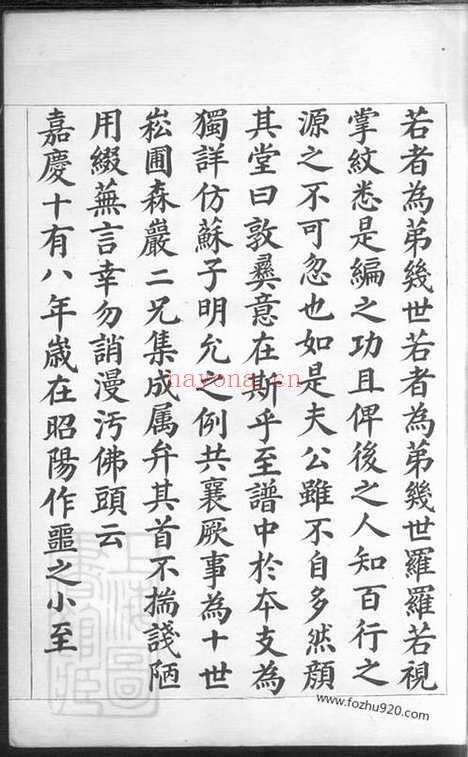 若者為弟幾世若者為弟幾世羅羅若視
掌紋悉是編之功且俾後之人知百行之
源之不可忽也如是夫公雖不自多然顏
其堂曰敦彝意在斯乎至譜中於本支為
獨詳仿蘇子明允之例共襄厥事為十世
崧圃森嚴二兄集成属弁其首不揣諓陋
用綴蕪言幸勿誚漫汚佛頭云
嘉慶十有八年嵗在昭陽作噩之小至
nayona.cn
上海圖
書館藏
www.fozhu920.com